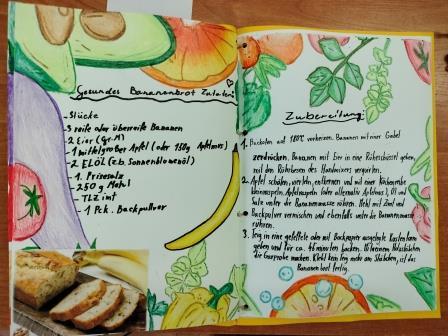 Gesundes Bananenbrot Zutaten:
- Stücke
- 3 reife oder überreife Bananen
- 2 Eier (Gr. M)
- 1 mittelgroßer Apfel (oder 150g Apfelmus)
- 2 ELÖL (z.b. Sonnenblumenöl)
- 1. Prisesalz
- 250 g Mehl
- TLZimt
- 1 Pck. Backpulver
Zubereitung:
1. Backofen auf 180°C vorheizen. Bananen mit einer Gabel
zerdrücken. Bananen mit Eier in eine Rührschüssel geben,
mit den Rührbesen des Handmixers verquirlen.
2. Apfel schälen, vierteln, entkernen und mit einer Küchenreibe
kleinraspeln. Apfelraspeln (oder alternativ Apfelmus), Öl und
Salz unter die Bananenmasse rühren. Mehl mit Zimt und
Backpulver vermischen und ebenfalls unter die Bananenmasse
rühren.
3. Teig in eine gefettete oder mit Backpapier ausgelegte Kastenform
geben und für ca. 45 minuten backen. Mit einem Holzstäbchen
die Garprobe machen. Klebt kein Teig mehr am Stäbchen, ist das
Bananenbrot fertig.